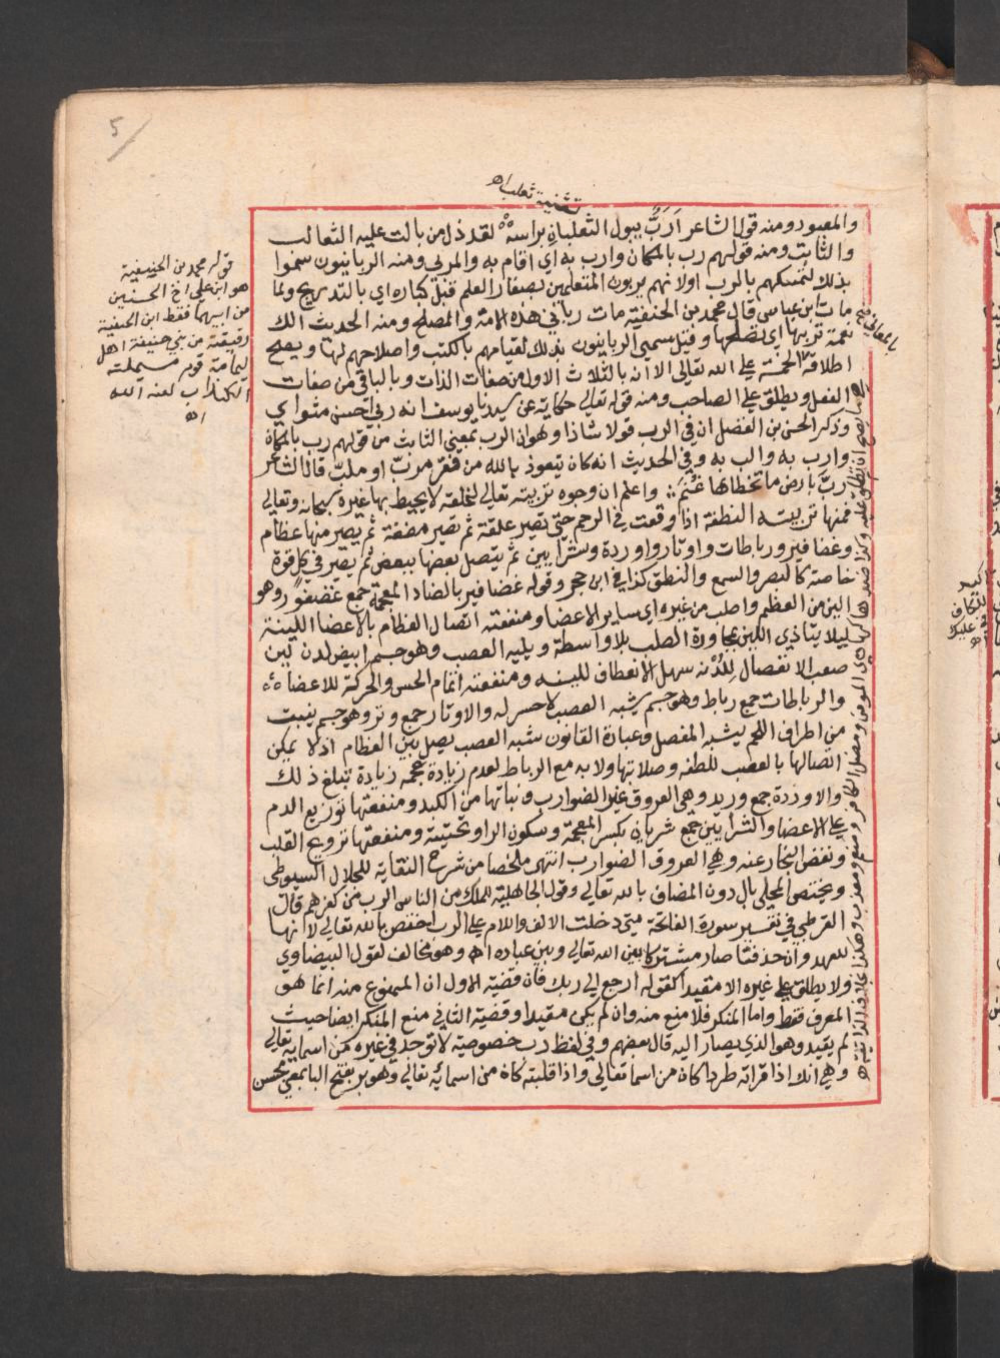 5
تثنية ثعلب اهـ
والمعبود ومنه قول الشاعر أَرَبٌّ يبول الثعلبان براسه لقد ذل من بالت عليه الثعالب
والثابت ومنه قولهم رب بالمكان وارب به اي اقام به والمربي ومنه الربانيون سموا
بذلك لتمسكهم بالرب اولانهم يربون المتعلمين بصغار العلم قبل كباره اي بالتدريج ولما
مات ابن عباس قال محمد بن الحنفية مات رباني هذه الامة والمصلح ومنه الحديث الك
نعمة تربها اي تصلحها وقيل سمي الربانيون بذلك لقيامهم بالكتب واصلاحهم لها ويصح
اطلاقه على الله تعالى الا ان بالثلاث الاول من صفات الذات وبالباقي من صفات
الفعل ويطلق على الصاحب ومنه قوله تعالى حكاية عن سيدنا يوسف انه ربي احسن مثواي
وذكر الحسن بن الفضل ان في الرب قولا شاذا وهو ان الرب بمعنى الثابت من قولهم رب بالمكان
وارب به والب به وفي الحديث انه كان يتعوذ بالله من فقر مرب او ملب قال الشاعر
رب بارض ما تخطاها غنم واعلم ان وجوه تربيته تعالى لخلقه لا يحيط بها غيره سبحانه وتعالى
فمنها تربيته النطفة اذا وقعت في الرحم حتى تصير علقة ثم تصير مضغة ثم يصير منها عظام
وغضافير ورباطات واوتار واوردة وشرايين ثم يتصل بعضها ببعض ثم يصير في كل قوة
خاصة كالبصر والسمع والنطق كذا في ابن حجر وقوله غضافير بالضاد المعجمة جمع غضفور وهو
الين من العظم واصلب من غيره اي ساير الاعضا ومنفعته اتصال العظام بالاعضا اللينة
ليلا يتاذي اللين بمجاورة الصلب بلا واسطة ويليه العصب وهو جسم ابيض لدن لين
صعب الانفصال للدنه سهل الانعطاف للينه ومنفعته اتمام الحس والحركة للاعضا
والرباطات جمع رباط وهو جسم يشبه العصب لا حس له والاوتار جمع وتر وهو جسم ينبت
من اطراف اللحم يشبه المفصل وعبارة القانون شبه العصب يصل بين العظام اذ لا يمكن
اتصالها بالعصب للطفه وصلابتها ولا به مع الرباط لعدم زيادة حجمه زيادة تبلغ ذلك
والاوردة جمع وريد وهي العروق غير الضوارب ونباتها من الكبد ومنفعتها توزيع الدم
على الاعضا والشرايين جمع شريان بكسر المعجمة وسكون الرا وتحتية ومنفعتها ترويح القلب
ونفض البخار عنه وهي العروق الضوارب انتهى ملخصا من شرح النقاية للجلال السيوطي
ويختص المحلي بال دون المضاف بالله تعالى وقول الجاهلية للملك من الناس الرب من كفرهم قال
القرطبي في تفسير سورة الفاتحة متى دخلت الالف واللام على الرب اختص بالله تعالى لانها
للعهد وان حذفتا صار مشتركا بين الله تعالى وبين عباده اهـ وهو مخالف لقول البيضاوي
ولا يطلق على غيره الا مقيدا كقوله ارجع الى ربك فان قضية الاول ان الممنوع منه انما هو
المعرف فقط واما المنكر فلا منع منه وان لم يكن مقيدا وقضية الثاني منع المنكر ايضا حيث
لم يقيد وهو الذي يصار اليه قال بعضهم وفي لفظ رب خصوصية لا توجد في غيره من اسمايه تعالى
وهي انك اذا قراته طردا كان من اسما تعالى واذا قلبته كان من اسمائه تعالى وهو بر بفتح البا بمعنى محسن
قوله محمد بن الحنيفية
هو ابن علي اخ الحسنين
من ابيهما فقط ابن الحنفية
رقيقة من بني حنيفة اهل
ليمامة قوم مسيلمة
الكذاب لعنه الله
اهـ